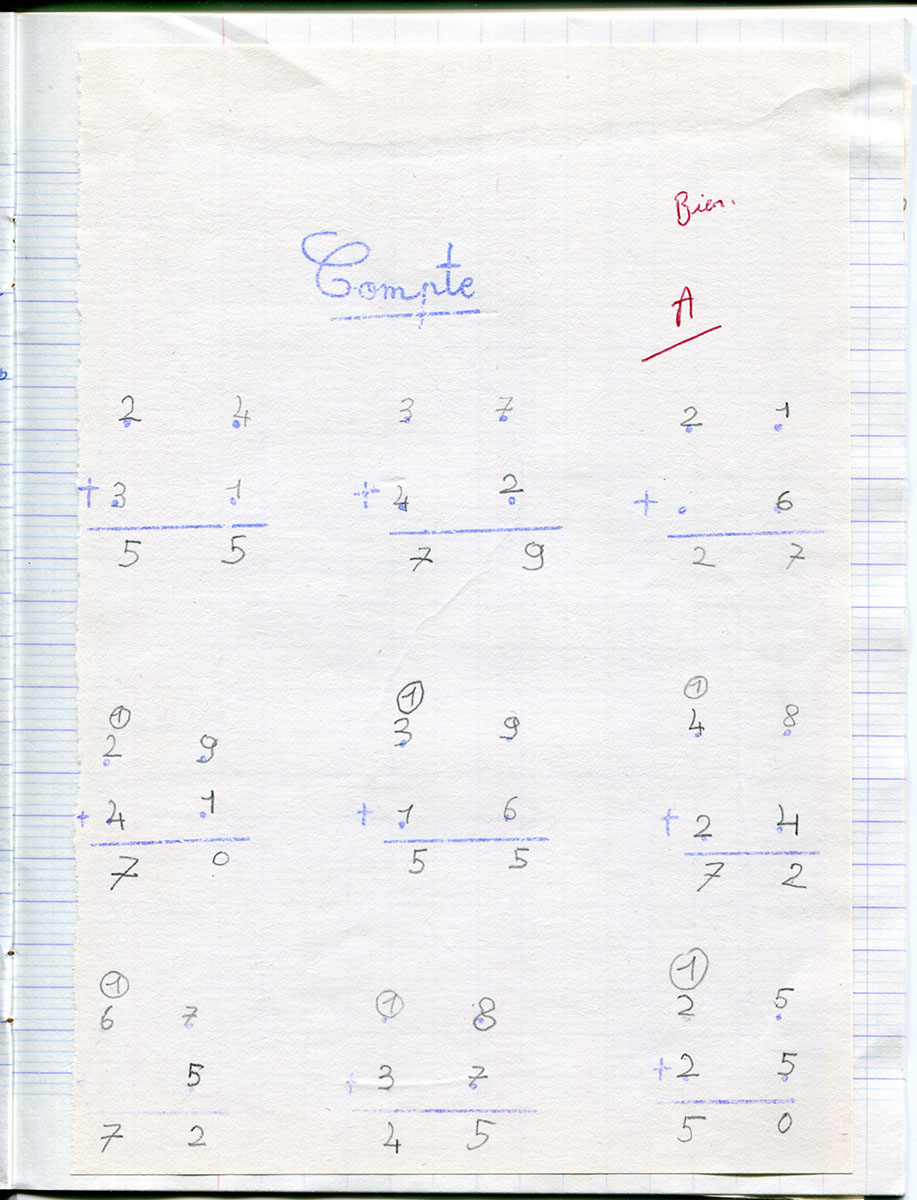 Bien.
Compte
A
2 4 3 7 2 1
+ 3 1 + 4 2 + . 6
5 5 7 9 2 7
1 1 1
2 9 3 9 4 8
+ 4 1 + 1 6 + 2 4
7 0 5 5 7 2
1 1
6 7 1 8 2 5
5 + 3 7 + 2 5
7 2 4 5 5 0